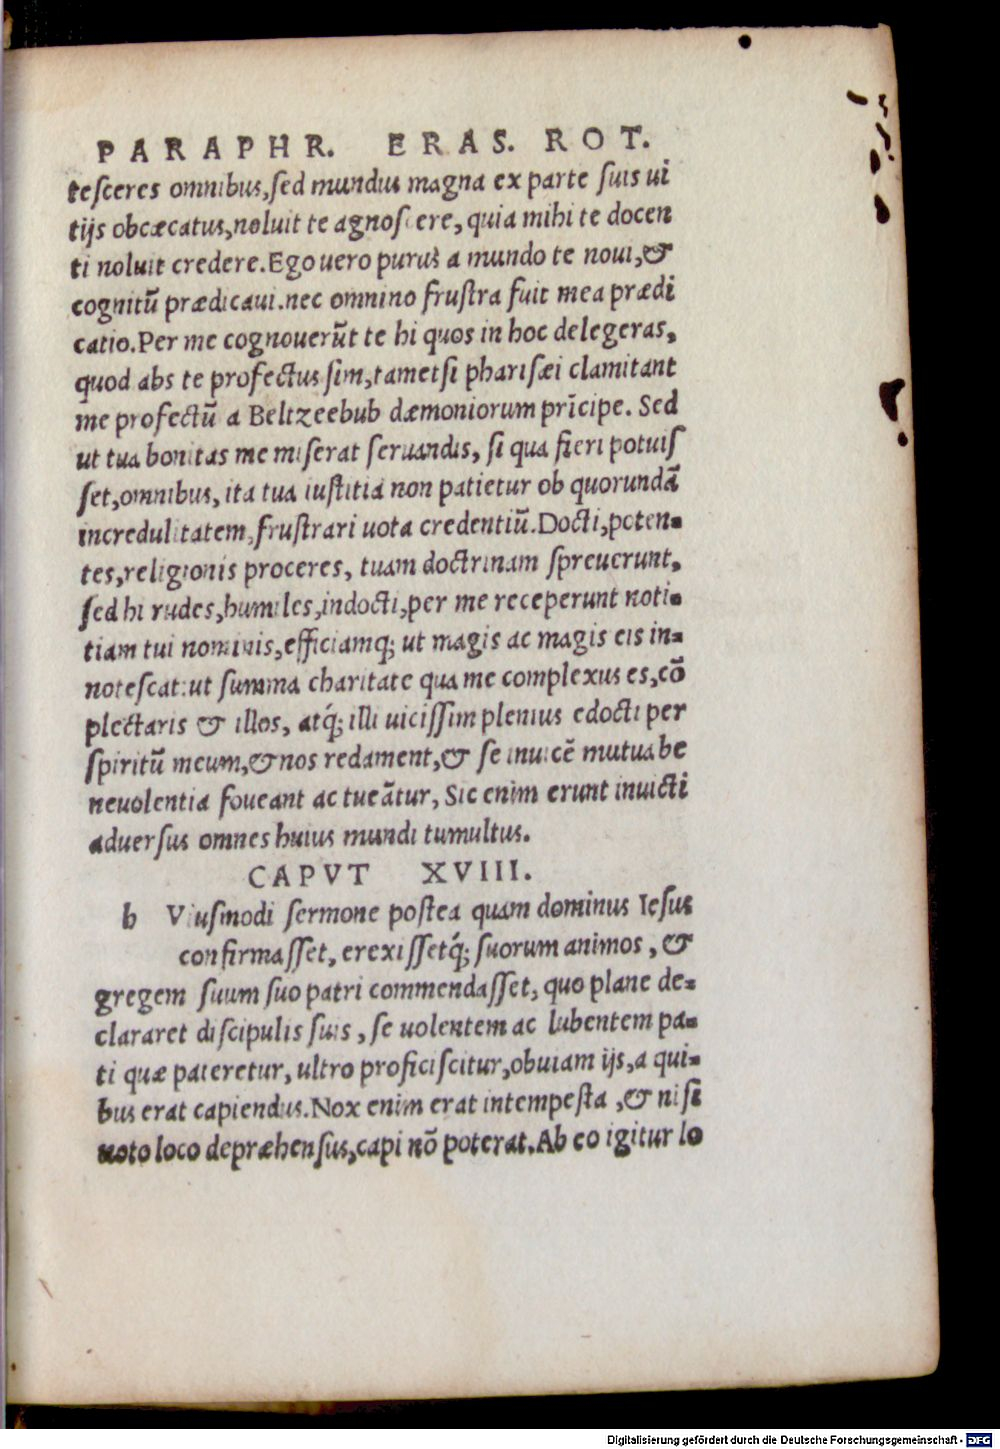 PARAPHR. ERAS. ROT.
tesceres omnibus, sed mundus magna ex parte suis ui
tijs obcæcatus, noluit te agnoscere, quia mihi te docen
ti noluit credere. Ego uero purus a mundo te noui, &
cognitū prædicaui. nec omnino frustra fuit mea prædi
catio. Per me cognouerūt te hi quos in hoc delegeras,
quod abs te profectus sim, tametsi pharisæi clamitant
me profectū a Beltzeebub dæmoniorum prīcipe. Sed
ut tua bonitas me miserat seruandis, si qua fieri potuis
set, omnibus, ita tua iustitia non patietur ob quorundā
incredulitatem, frustrari uota credentiū. Docti, poten-
tes, religionis proceres, tuam doctrinam spreuerunt,
sed hi rudes, humiles, indocti, per me receperunt noti-
tiam tui nominis, efficiamq; ut magis ac magis eis in-
notescat: ut summa charitate qua me complexus es, cō
plectaris & illos, atq́; illi uicissim plenius edocti per
spiritū meum, & nos redament, & se inuicē mutua be
neuolentia foueant ac tueātur, Sic enim erunt inuicti
aduersus omnes huius mundi tumultus.
CAPVT XVIII.
h Viusmodi sermone postea quam dominus Iesus
confirmasset, erexissetq́; suorum animos, &
gregem suum suo patri commendasset, quo plane de-
clararet discipulis suis, se uolentem ac lubentem pa-
ti quæ pateretur, ultro proficiscitur, obuiam ijs, a qui-
bus erat capiendus. Nox enim erat intempesta, & nisi
noto loco depræhensus, capi nō poterat. Ab eo igitur lo
Digitalisierung gefördert durch die Deutsche Forschungsgemeinschaft - DFG